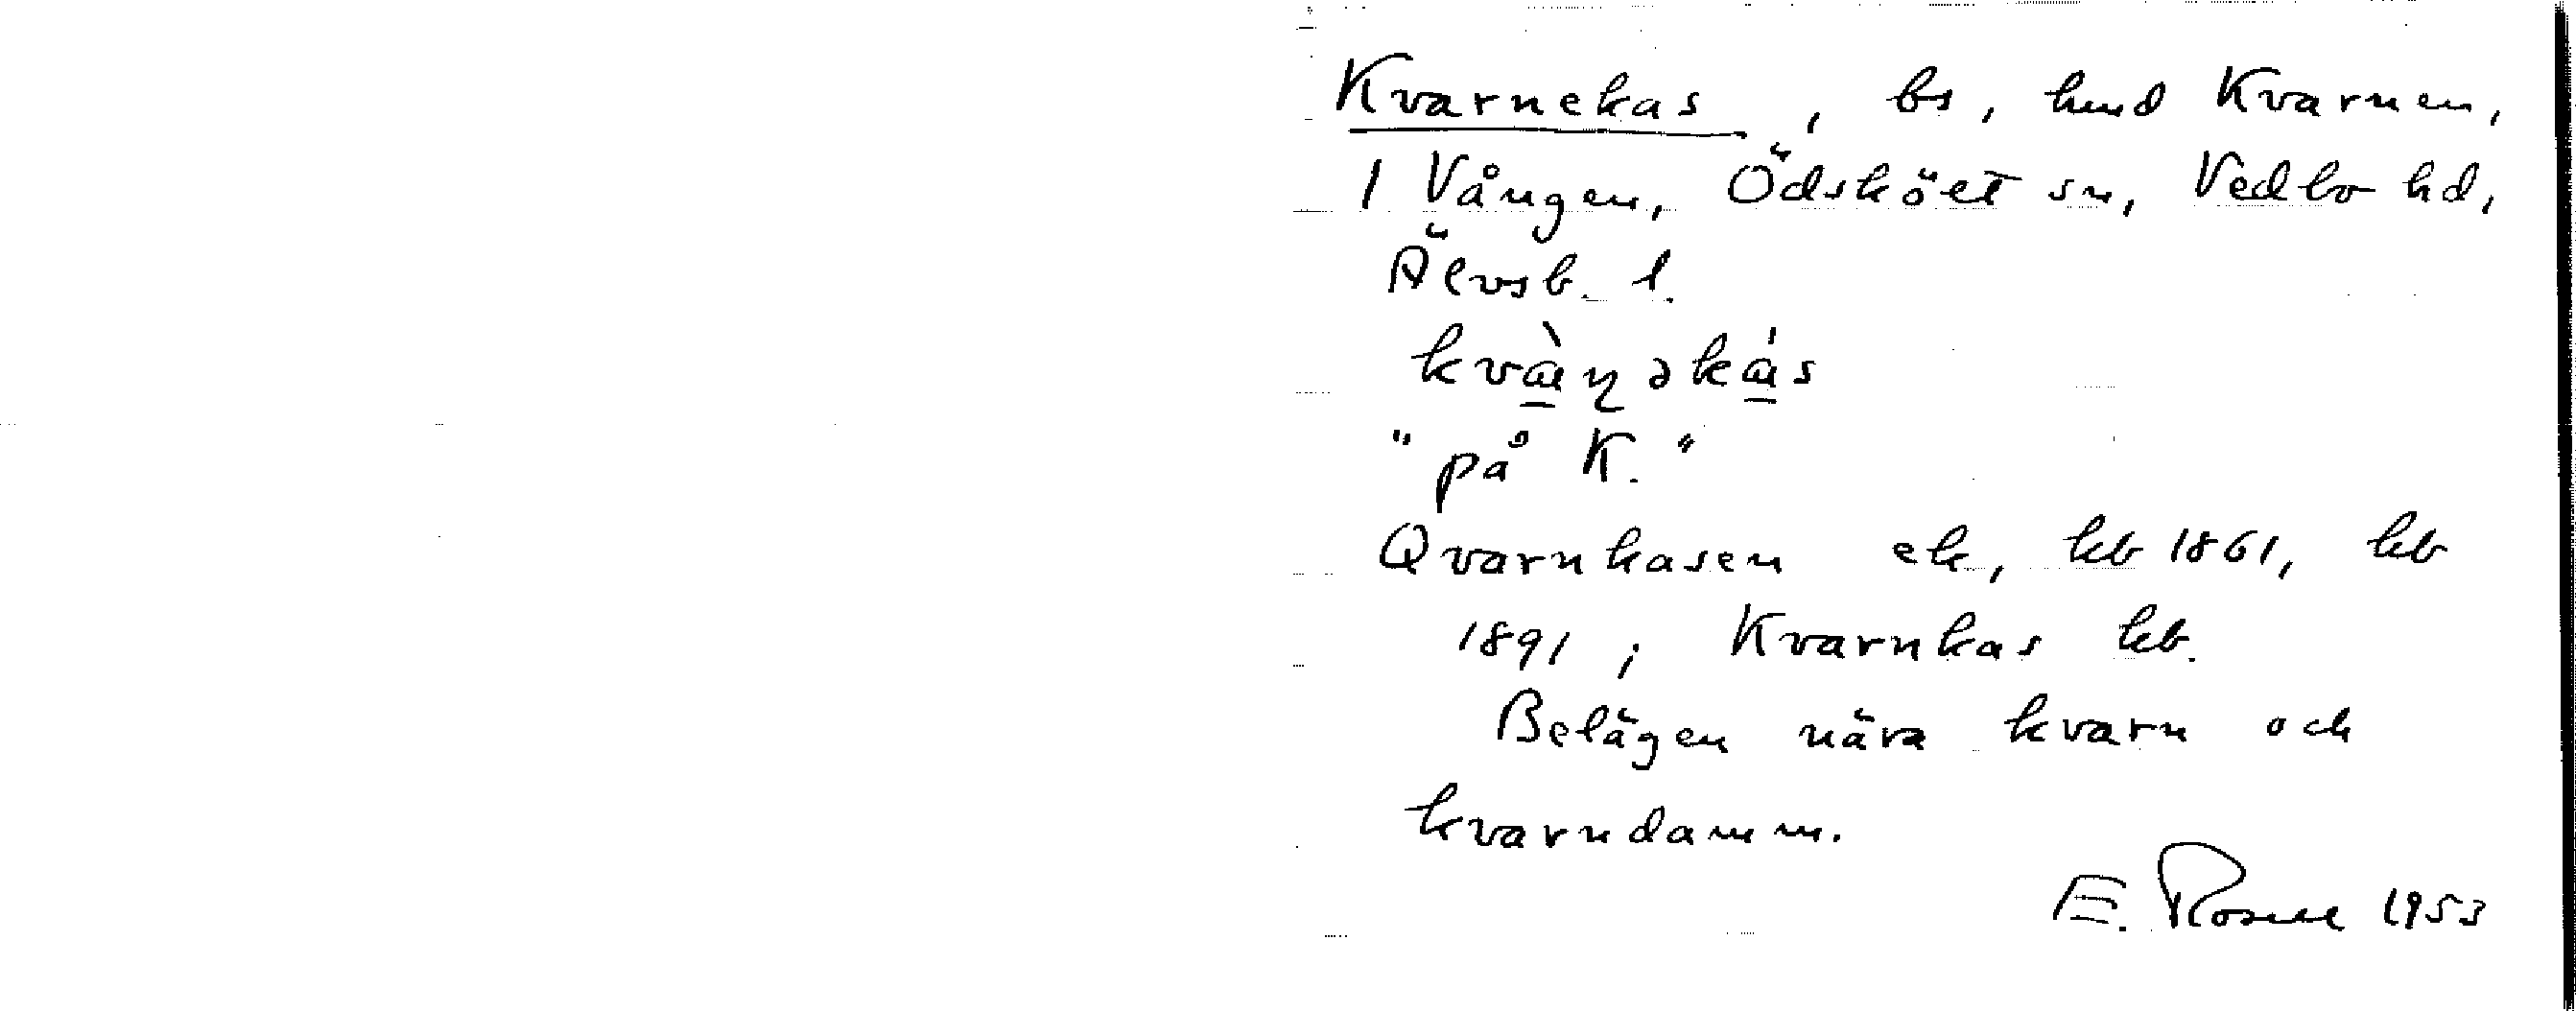 Kvarnekas, bs, hmd Kvarnen,
1 Vången, Ödsköet sn, Vedbo hd,
Älvsb. l.
"på K."
Qvarnkasen ek, kb 1861, kb
1891; Kvarnkas kb.
Belägen nära kvarn och
kvarndamm.
E. Rosell 1953